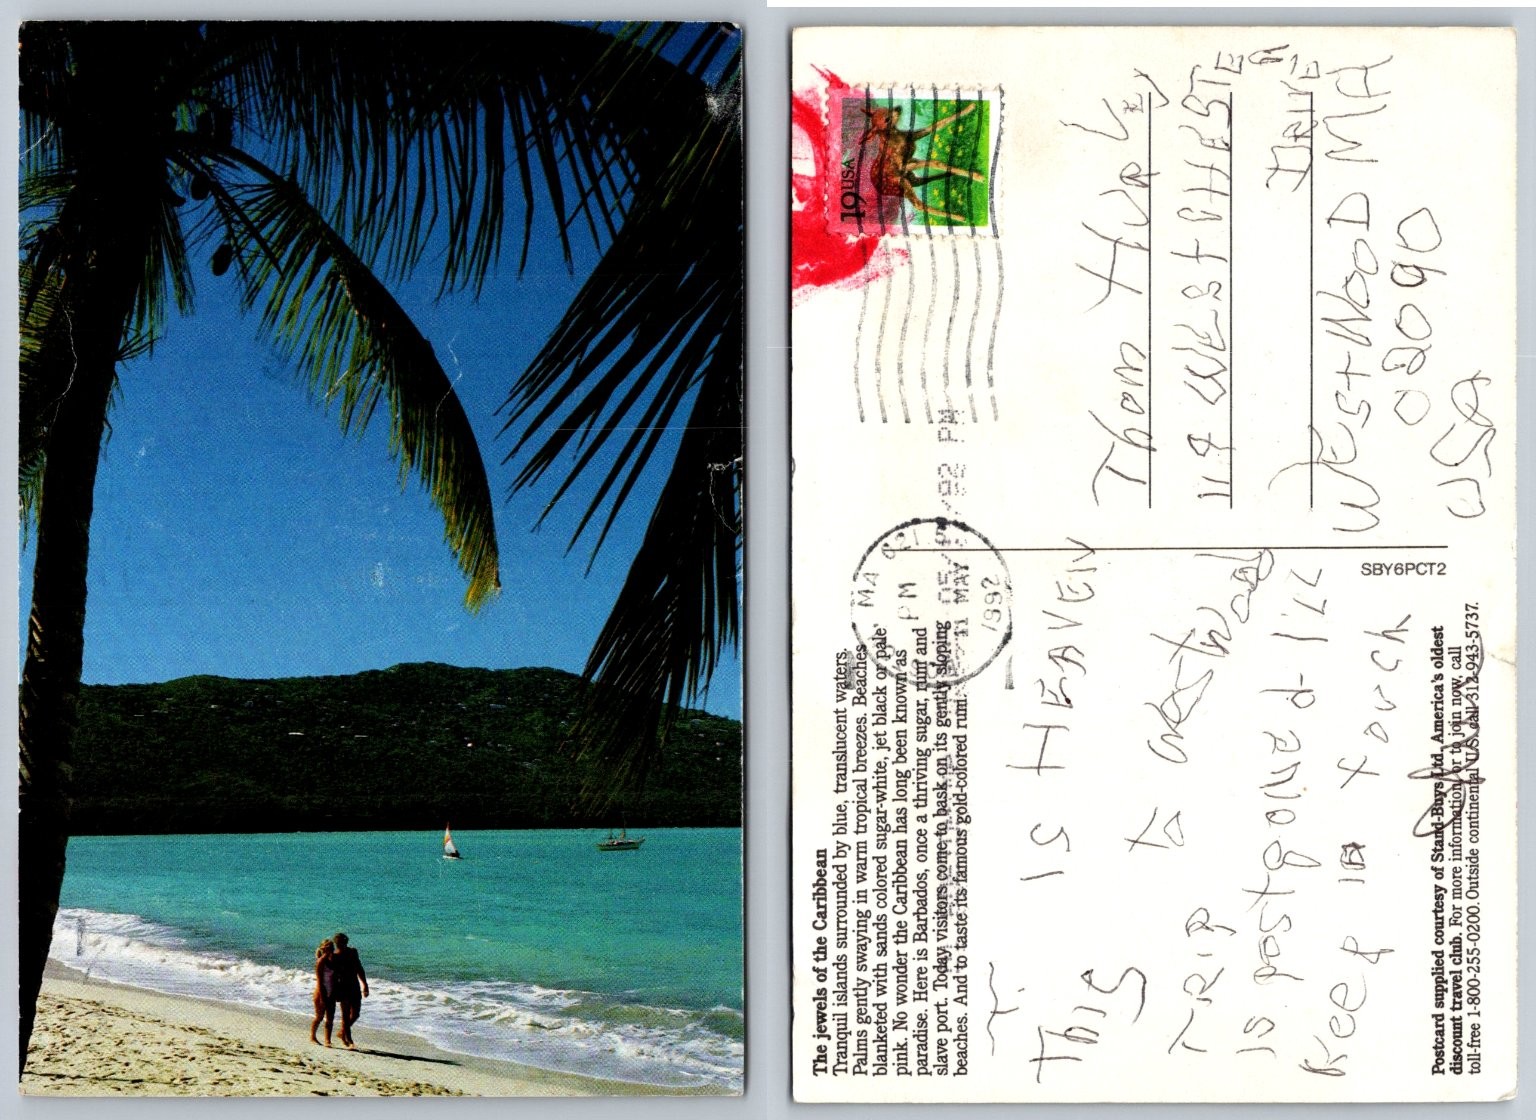 The jewels of the Caribbean
Tranquil islands surrounded by blue, translucent waters.
Palms gently swaying in warm tropical breezes. Beaches
blanketed with sands colored sugar-white, jet black or pale
pink. No wonder the Caribbean has long been known as
paradise. Here is Barbados, once a thriving sugar, rum and
slave port. Today visitors come to bask on its gently sloping
beaches. And to taste its famous gold-colored rum.
T.
This is HEAVEN
TRIP to west wood
is postponed - I'LL
keep in touch
Postcard supplied courtesy of Stand-Buys Ltd, America's oldest
discount travel club. For more information or to join now, call
toll-free 1-800-255-0200. Outside continental U.S. call 312-943-5737.
SBY6PCT2
MA 021
PM
11 MAY
1992
19 USA
Thom HURLEY
119 WESTCHESTER
DRIVE
WEstWooD MA
02090
USA